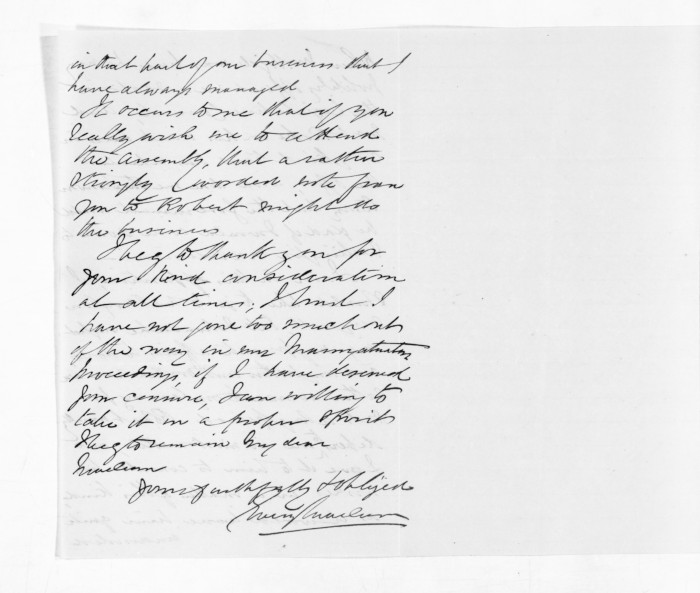 in that part of our business that I
have always managed
It occurs to me that if you
really wish me to attend
the assembly, that a rather
strongly worded note from
you to Robert might do
the business
I beg to thank you for
your kind consideration
at all times, I trust I
have not gone too much out
of the way in my
proceedings, if I have deserved
your censure, I am willing to
take it in a proper spirit
I beg to remain My dear
McLean
Yours faithfully & obliged